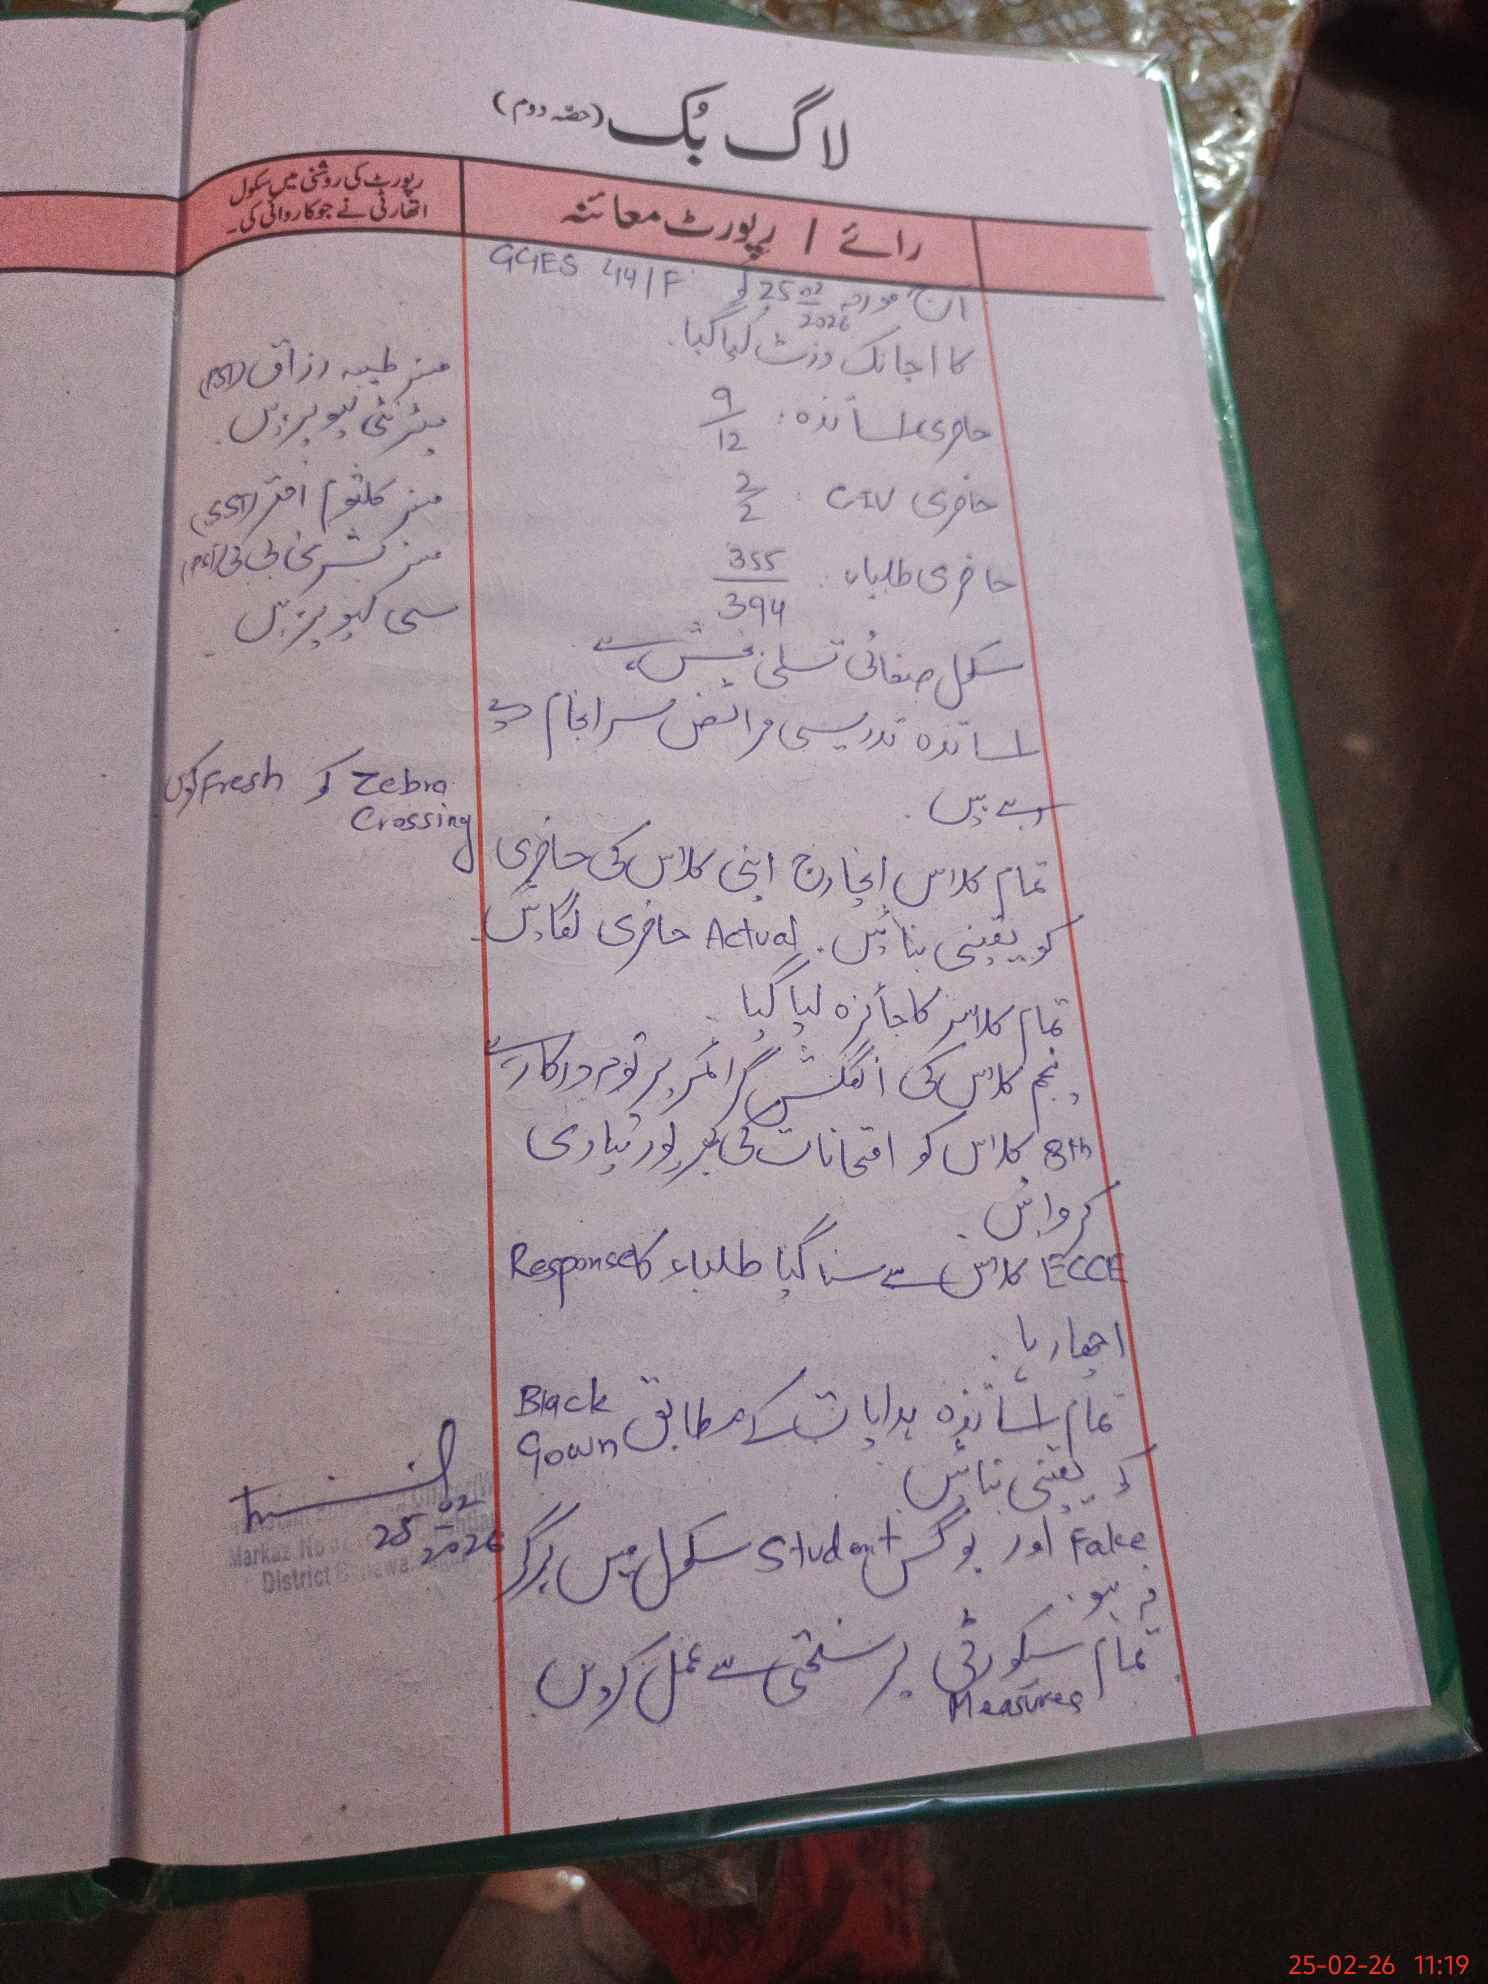 لاگ بُک (حصّہ دوم)
رائے / رپورٹ معائنہ
رپورٹ کی روشنی میں سکول
اتھارٹی نے جو کاروائی کی۔
آج مورخہ 25-02-2026 کو GGES 44/F
کا اچانک وزٹ کیا گیا۔
حاضری اساتذہ: 9/12
حاضری C-IV: 2/2
حاضری طلباء: 355/394
سکول صفائی تسلی بخش ہے
اساتذہ تدریسی فرائض سرانجام دے
رہے ہیں۔
تمام کلاس انچارج اپنی کلاس کی حاضری
کو یقینی بنائیں۔ Actual حاضری لگائیں
تمام کلاسز کا جائزہ لیا گیا۔
پنجم کلاس کی انگلش گرائمر پر توجہ درکار ہے
8th کلاس کو امتحانات کی بھرپور تیاری
کروائیں۔
ECCE کلاس سے سنا گیا طلباء کا Response
اچھا رہا۔
تمام اساتذہ ہدایات کے مطابق Black Gown
کو یقینی بنائیں۔
Fake اور بوگس Student سکول میں ہرگز
نہ ہو۔
تمام سکورٹی Measures پر سختی سے عمل کریں۔
مسز طیبہ رزاق (PST)
میٹرنٹی لیو پر ہیں۔
مسز کلثوم اختر (SST)
مسز بشریٰ بی بی (PST)
سی لیو پر ہیں۔
Zebra Crossing کو Fresh کریں
25-02-2026
Markaz
District
25-02-26 11:19